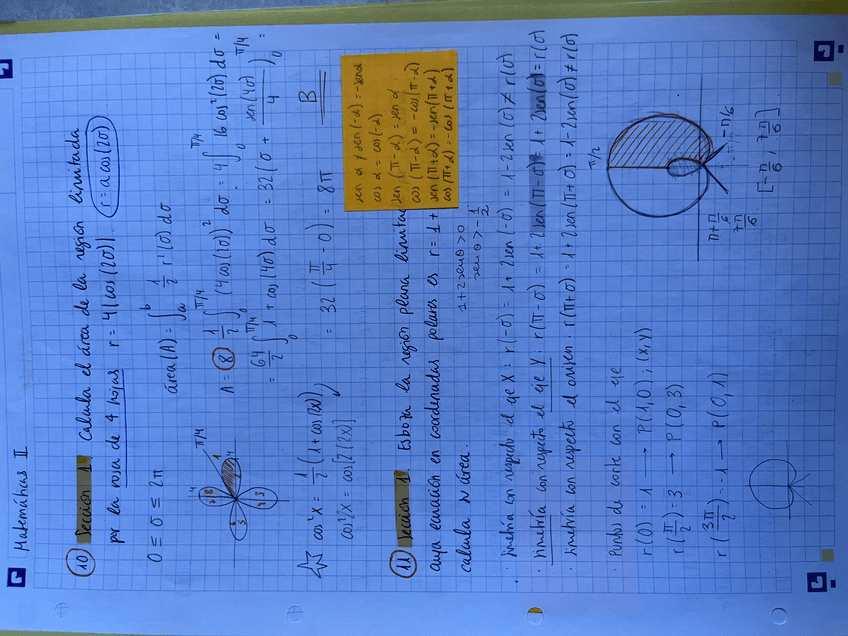 Matemáticas II
10 Sección 1. Calcula el área de la región limitada
por la rosa de 4 hojas r = 4|cos(2θ)|. r = a cos(2θ)
0 ≤ θ ≤ 2π
área(A) = ∫ₐᵇ 1/2 r²(θ) dθ
π/4
A = 8 1/2 ∫₀^π/4 (4cos(2θ))² dθ = 4 ∫₀^π/4 16 cos²(2θ) dθ =
= 64/2 ∫₀^π/4 1 + cos(4θ) dθ = 32 (θ + sen(4θ)/4)₀^π/4 =
= 32 (π/4 - 0) = 8π B
☆ cos²x = 1/2 (1 + cos(2x))
cos²/x = cos[2(2x)]
sen α y sen(-α) = -senα
cos α = cos(-α)
sen(π-α) = sen α
cos(π-α) = -cos(π-α)
sen(π+α) = -sen(π+α)
cos(π+α) = -cos(π+α)
11 Sección 1. Esboza la región plana limitada
cuya ecuación en coordenadas polares es r = 1 +
calcula su área.
1 + 2senθ > 0
senθ > -1/2
· Simetría con respecto el eje X: r(-θ) = 1 + 2sen(-θ) = 1 - 2sen(θ) ≠ r(θ)
· Simetría con respecto el eje Y: r(π-θ) = 1 + 2sen(π-θ) = 1 + 2sen(θ) = r(θ)
· Simetría con respecto el origen: r(π+θ) = 1 + 2sen(π+θ) = 1 - 2sen(θ) ≠ r(θ)
· Puntos de corte con el eje
r(0) = 1 → P(1,0); (x,y)
r(π/2) = 3 → P(0,3)
r(3π/2) = -1 → P(0,1)
π/2
π + π/6
7π/6
-π/6
[-π/6, 7π/6]